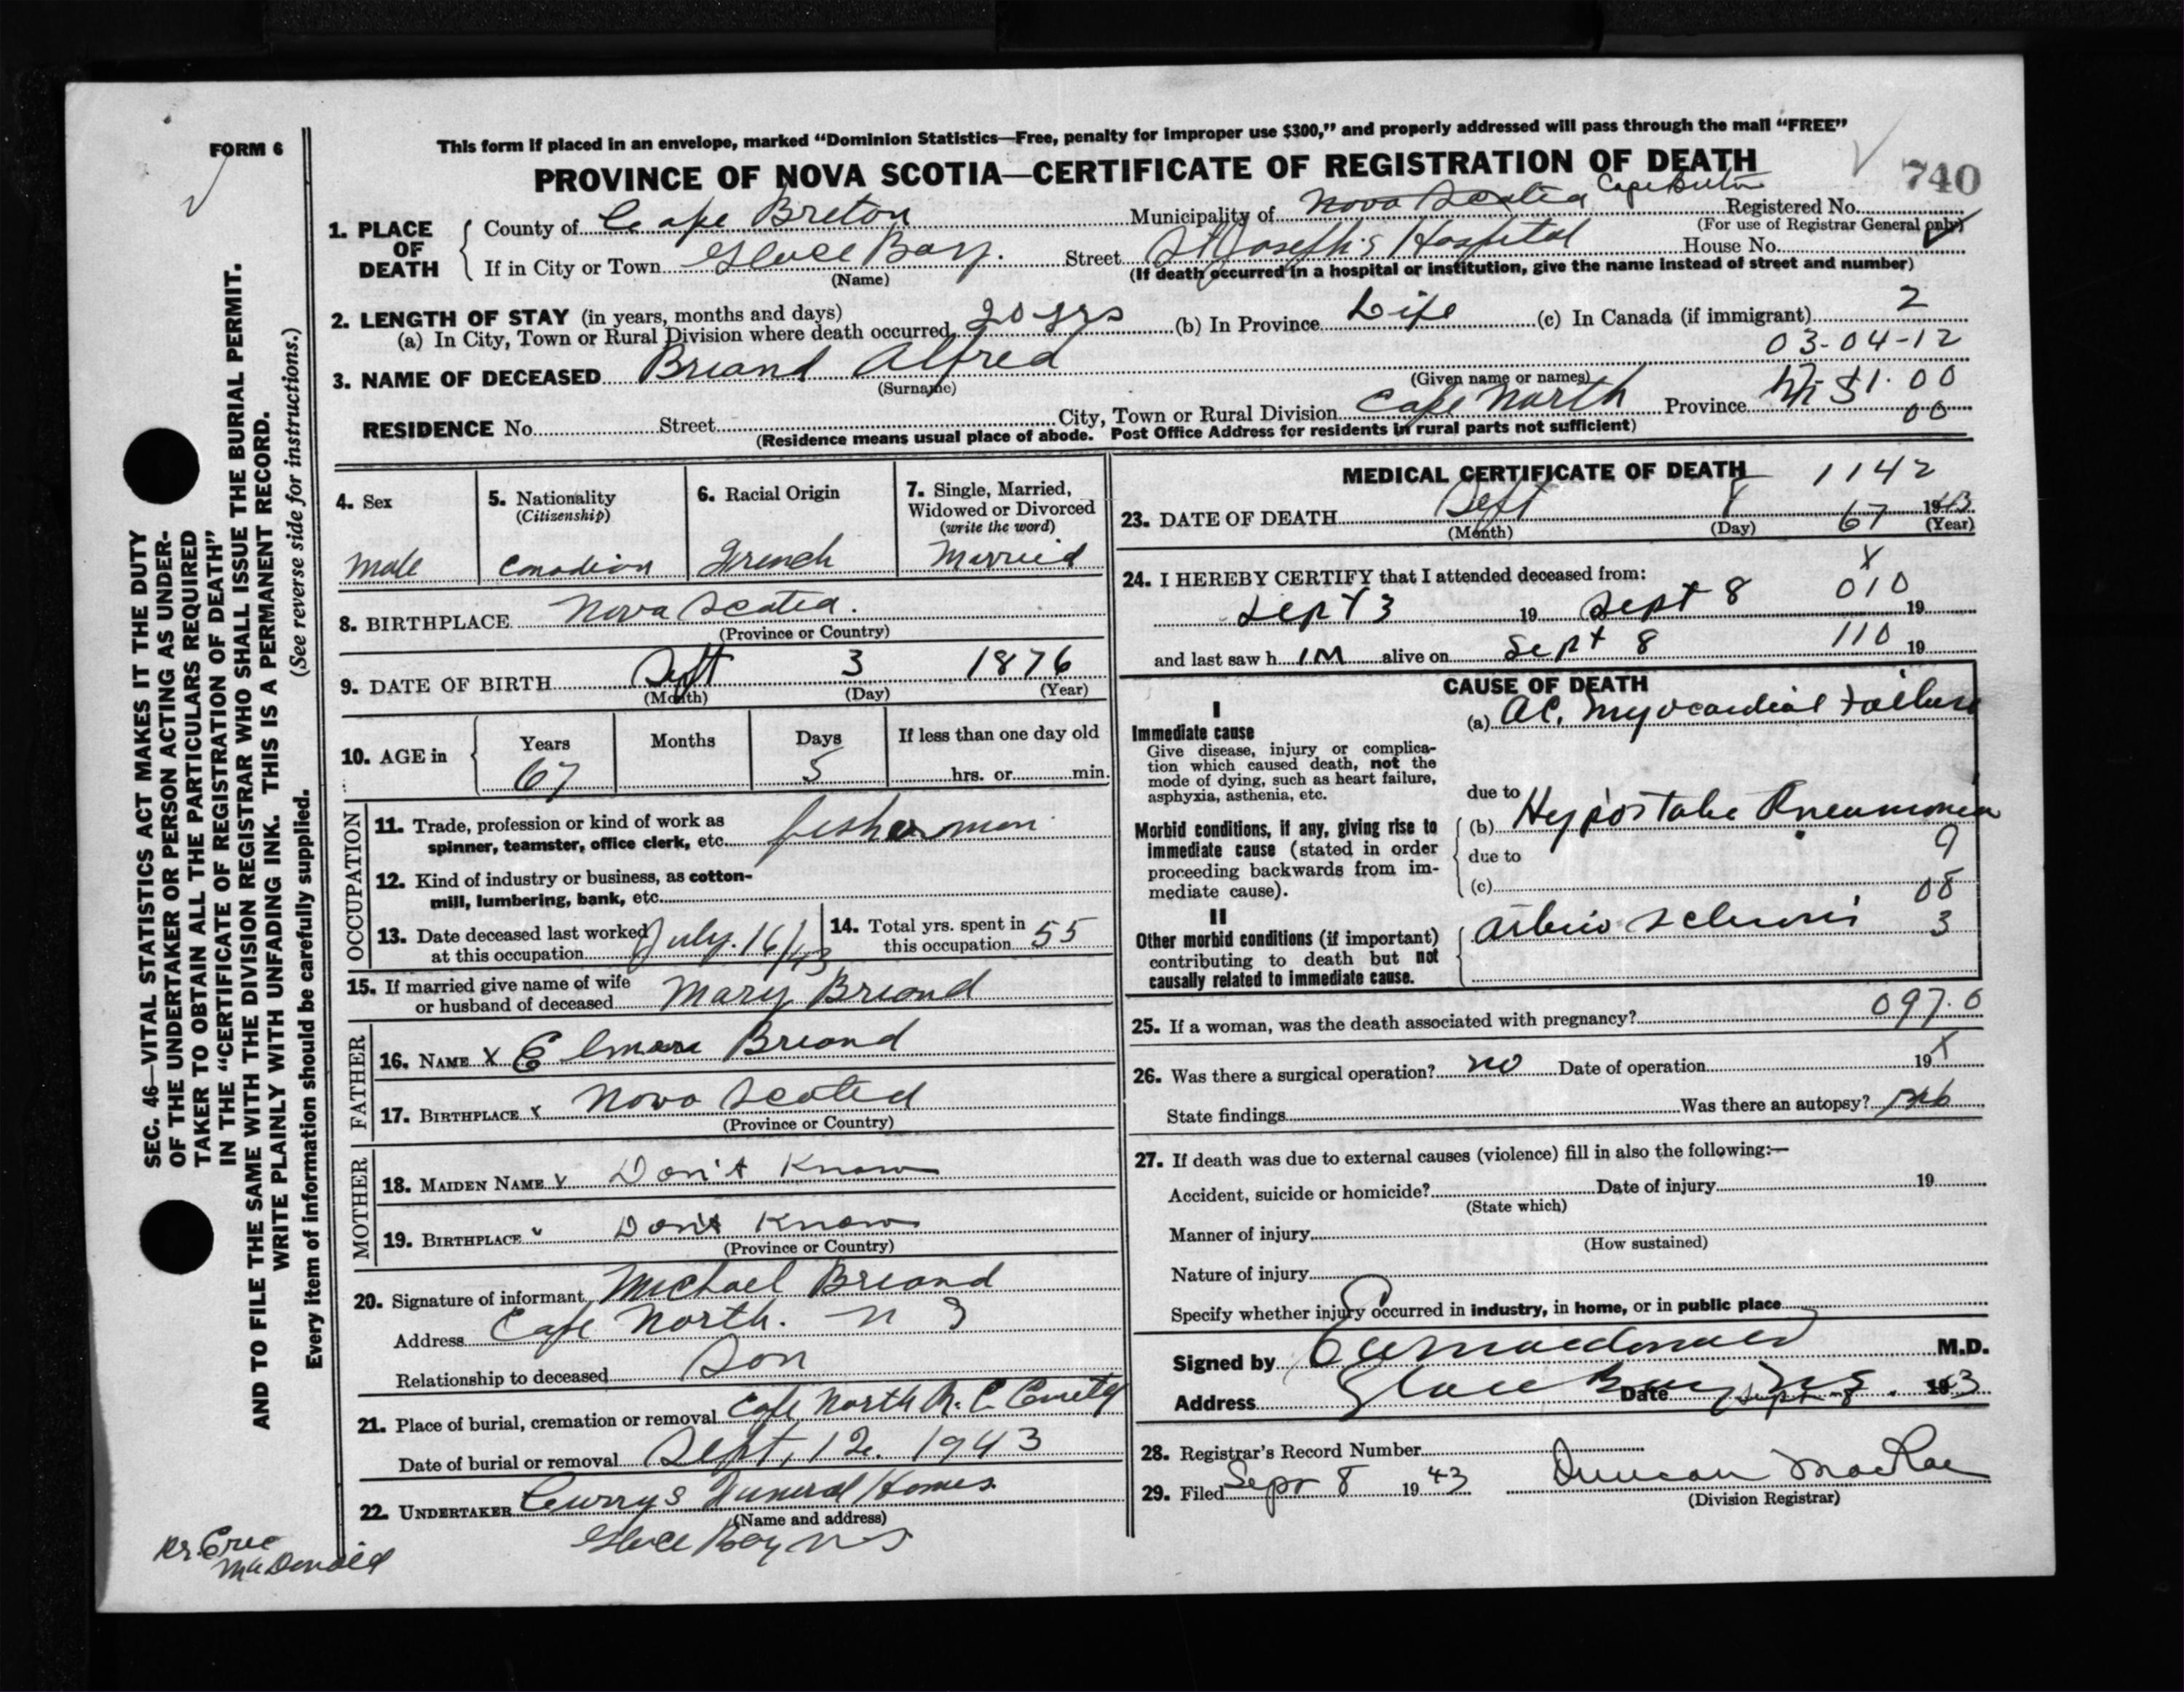 FORM 6
This form if placed in an envelope, marked “Dominion Statistics—Free, penalty for improper use $300,” and properly addressed will pass through the mail “FREE”
PROVINCE OF NOVA SCOTIA—CERTIFICATE OF REGISTRATION OF DEATH
740
1. PLACE OF DEATH
County of Cape Breton Municipality of Nova Scotia Cape Breton Registered No.
(For use of Registrar General only)
If in City or Town Glace Bay. Street St Joseph's Hospital House No.
(Name) (If death occurred in a hospital or institution, give the name instead of street and number)
2. LENGTH OF STAY (in years, months and days)
(a) In City, Town or Rural Division where death occurred 20 yrs (b) In Province Life (c) In Canada (if immigrant) 2
03-04-12
3. NAME OF DECEASED Briand Alfred
(Surname) (Given name or names)
RESIDENCE No. Street City, Town or Rural Division Cape North Province 51.00
00
(Residence means usual place of abode. Post Office Address for residents in rural parts not sufficient)
4. Sex
male
5. Nationality
(Citizenship)
Canadian
6. Racial Origin
French
7. Single, Married,
Widowed or Divorced
(write the word)
Married
8. BIRTHPLACE Nova Scotia.
(Province or Country)
9. DATE OF BIRTH Sept 3 1876
(Month) (Day) (Year)
10. AGE in
Years Months Days If less than one day old
67 5 hrs. or min.
OCCUPATION
11. Trade, profession or kind of work as
spinner, teamster, office clerk, etc. fisherman
12. Kind of industry or business, as cotton-
mill, lumbering, bank, etc.
13. Date deceased last worked
at this occupation July. 16/43
14. Total yrs. spent in
this occupation 55
15. If married give name of wife
or husband of deceased Mary Briand
FATHER
16. NAME X Briand
17. BIRTHPLACE x Nova Scotia
(Province or Country)
MOTHER
18. MAIDEN NAME x Don't Know
19. BIRTHPLACE Don't Know
(Province or Country)
20. Signature of informant Michael Briand
Address Cape North. N S
Relationship to deceased Son
21. Place of burial, cremation or removal Cape North R. C. Cemetery
Date of burial or removal Sept. 12. 1943
22. UNDERTAKER Curry's Funeral Homes.
(Name and address)
Glace Bay N S
MEDICAL CERTIFICATE OF DEATH 1142
23. DATE OF DEATH Sept 8 1943
67
(Month) (Day) (Year)
24. I HEREBY CERTIFY that I attended deceased from:
X
010
Sept 3 19 Sept 8 19
110
and last saw him alive on Sept 8 19
CAUSE OF DEATH
I
Immediate cause
Give disease, injury or complica-
tion which caused death, not the
mode of dying, such as heart failure,
asphyxia, asthenia, etc.
(a) Ac. Myocardial Failure
due to
Morbid conditions, if any, giving rise to
immediate cause (stated in order
proceeding backwards from im-
mediate cause).
(b) Hypostatic Pneumonia
due to 9
(c) 08
II
Other morbid conditions (if important)
contributing to death but not
causally related to immediate cause.
Arterio sclerosis 3
25. If a woman, was the death associated with pregnancy? 097.0
26. Was there a surgical operation? no Date of operation 19 X
State findings Was there an autopsy?
27. If death was due to external causes (violence) fill in also the following:—
Accident, suicide or homicide? Date of injury 19
(State which)
Manner of injury
(How sustained)
Nature of injury
Specify whether injury occurred in industry, in home, or in public place
Signed by Macdonald M.D.
Address Glace Bay N.S. Date Sept 8 1943
28. Registrar's Record Number
29. Filed Sept 8 1943 Duncan MacRae
(Division Registrar)
SEC. 46—VITAL STATISTICS ACT MAKES IT THE DUTY
OF THE UNDERTAKER OR PERSON ACTING AS UNDER-
TAKER TO OBTAIN ALL THE PARTICULARS REQUIRED
IN THE “CERTIFICATE OF REGISTRATION OF DEATH”
AND TO FILE THE SAME WITH THE DIVISION REGISTRAR WHO SHALL ISSUE THE BURIAL PERMIT.
WRITE PLAINLY WITH UNFADING INK. THIS IS A PERMANENT RECORD.
Every item of information should be carefully supplied. (See reverse side for instructions.)
Dr. Eric
MacDonald